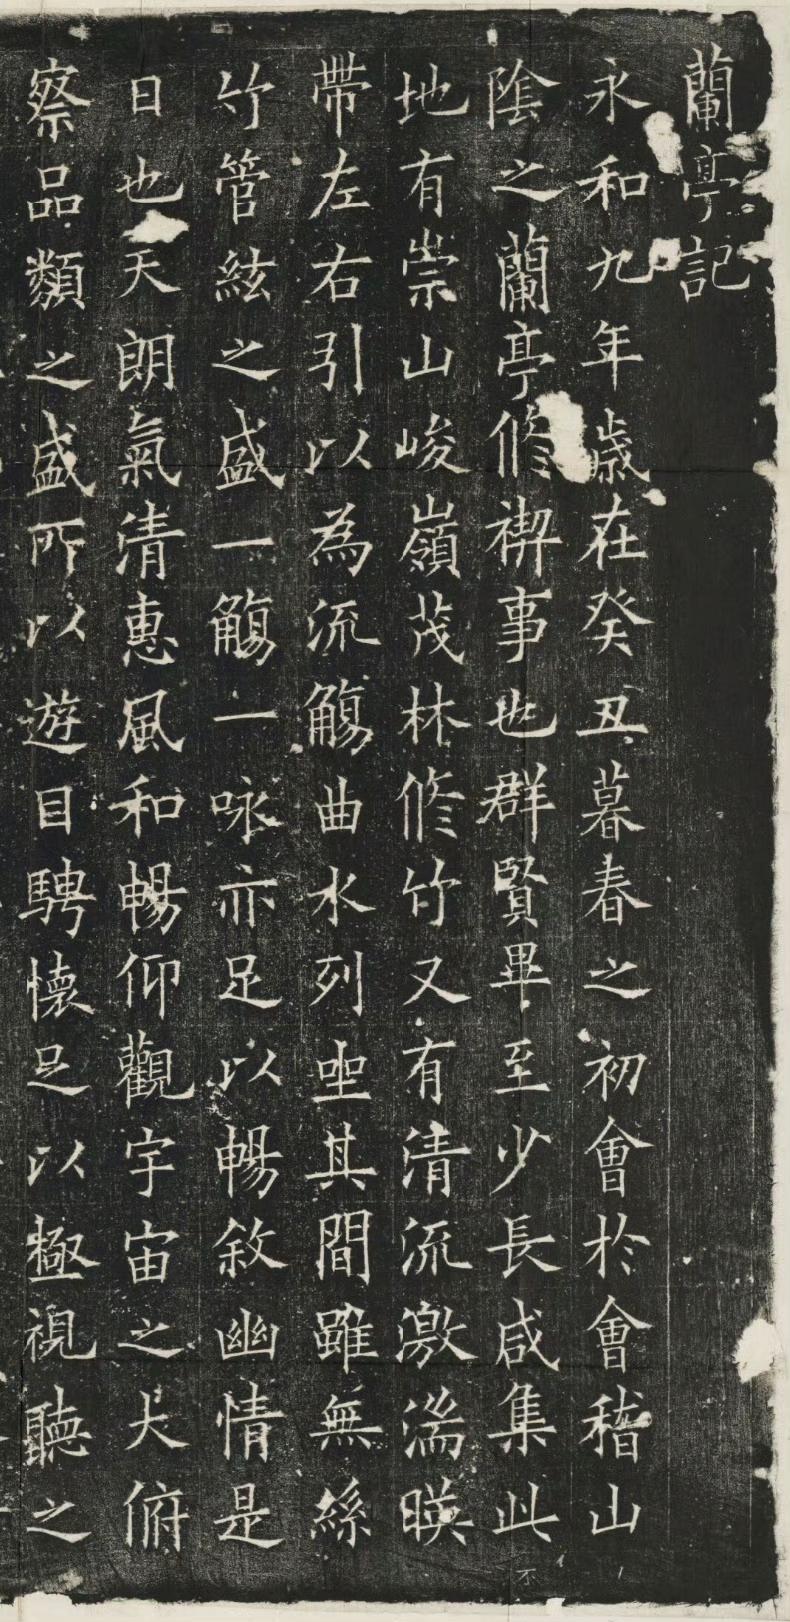 蘭亭記
永和九年歲在癸丑暮春之初會於會稽山
陰之蘭亭脩禊事也群賢畢至少長咸集此
地有崇山峻嶺茂林脩竹又有清流激湍暎
帶左右引以為流觴曲水列坐其間雖無絲
竹管絃之盛一觴一咏亦足以暢敘幽情是
日也天朗氣清惠風和暢仰觀宇宙之大俯
察品類之盛所以遊目騁懷足以極視聽之